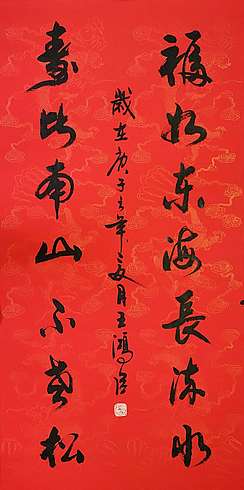 福如东海長流水
歲在庚子年夏月王鴻
壽比南山不老松